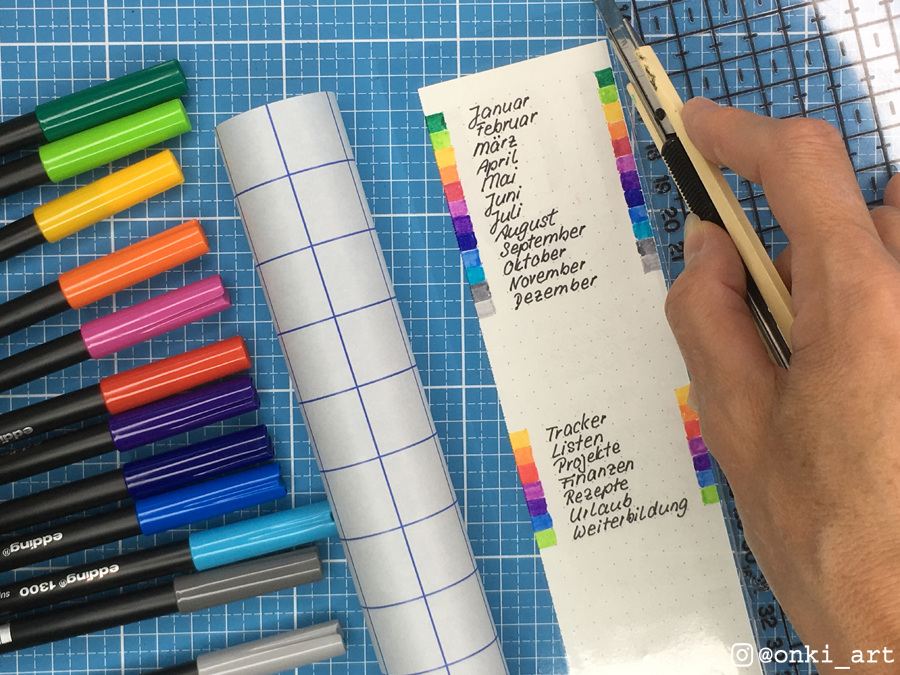 Januar
Februar
März
April
Mai
Juni
Juli
August
September
Oktober
November
Dezember
Tracker
Listen
Projekte
Finanzen
Rezepte
Urlaub
Weiterbildung
edding
edding®
edding® 1300
19
20
21
31
32
@onki_art